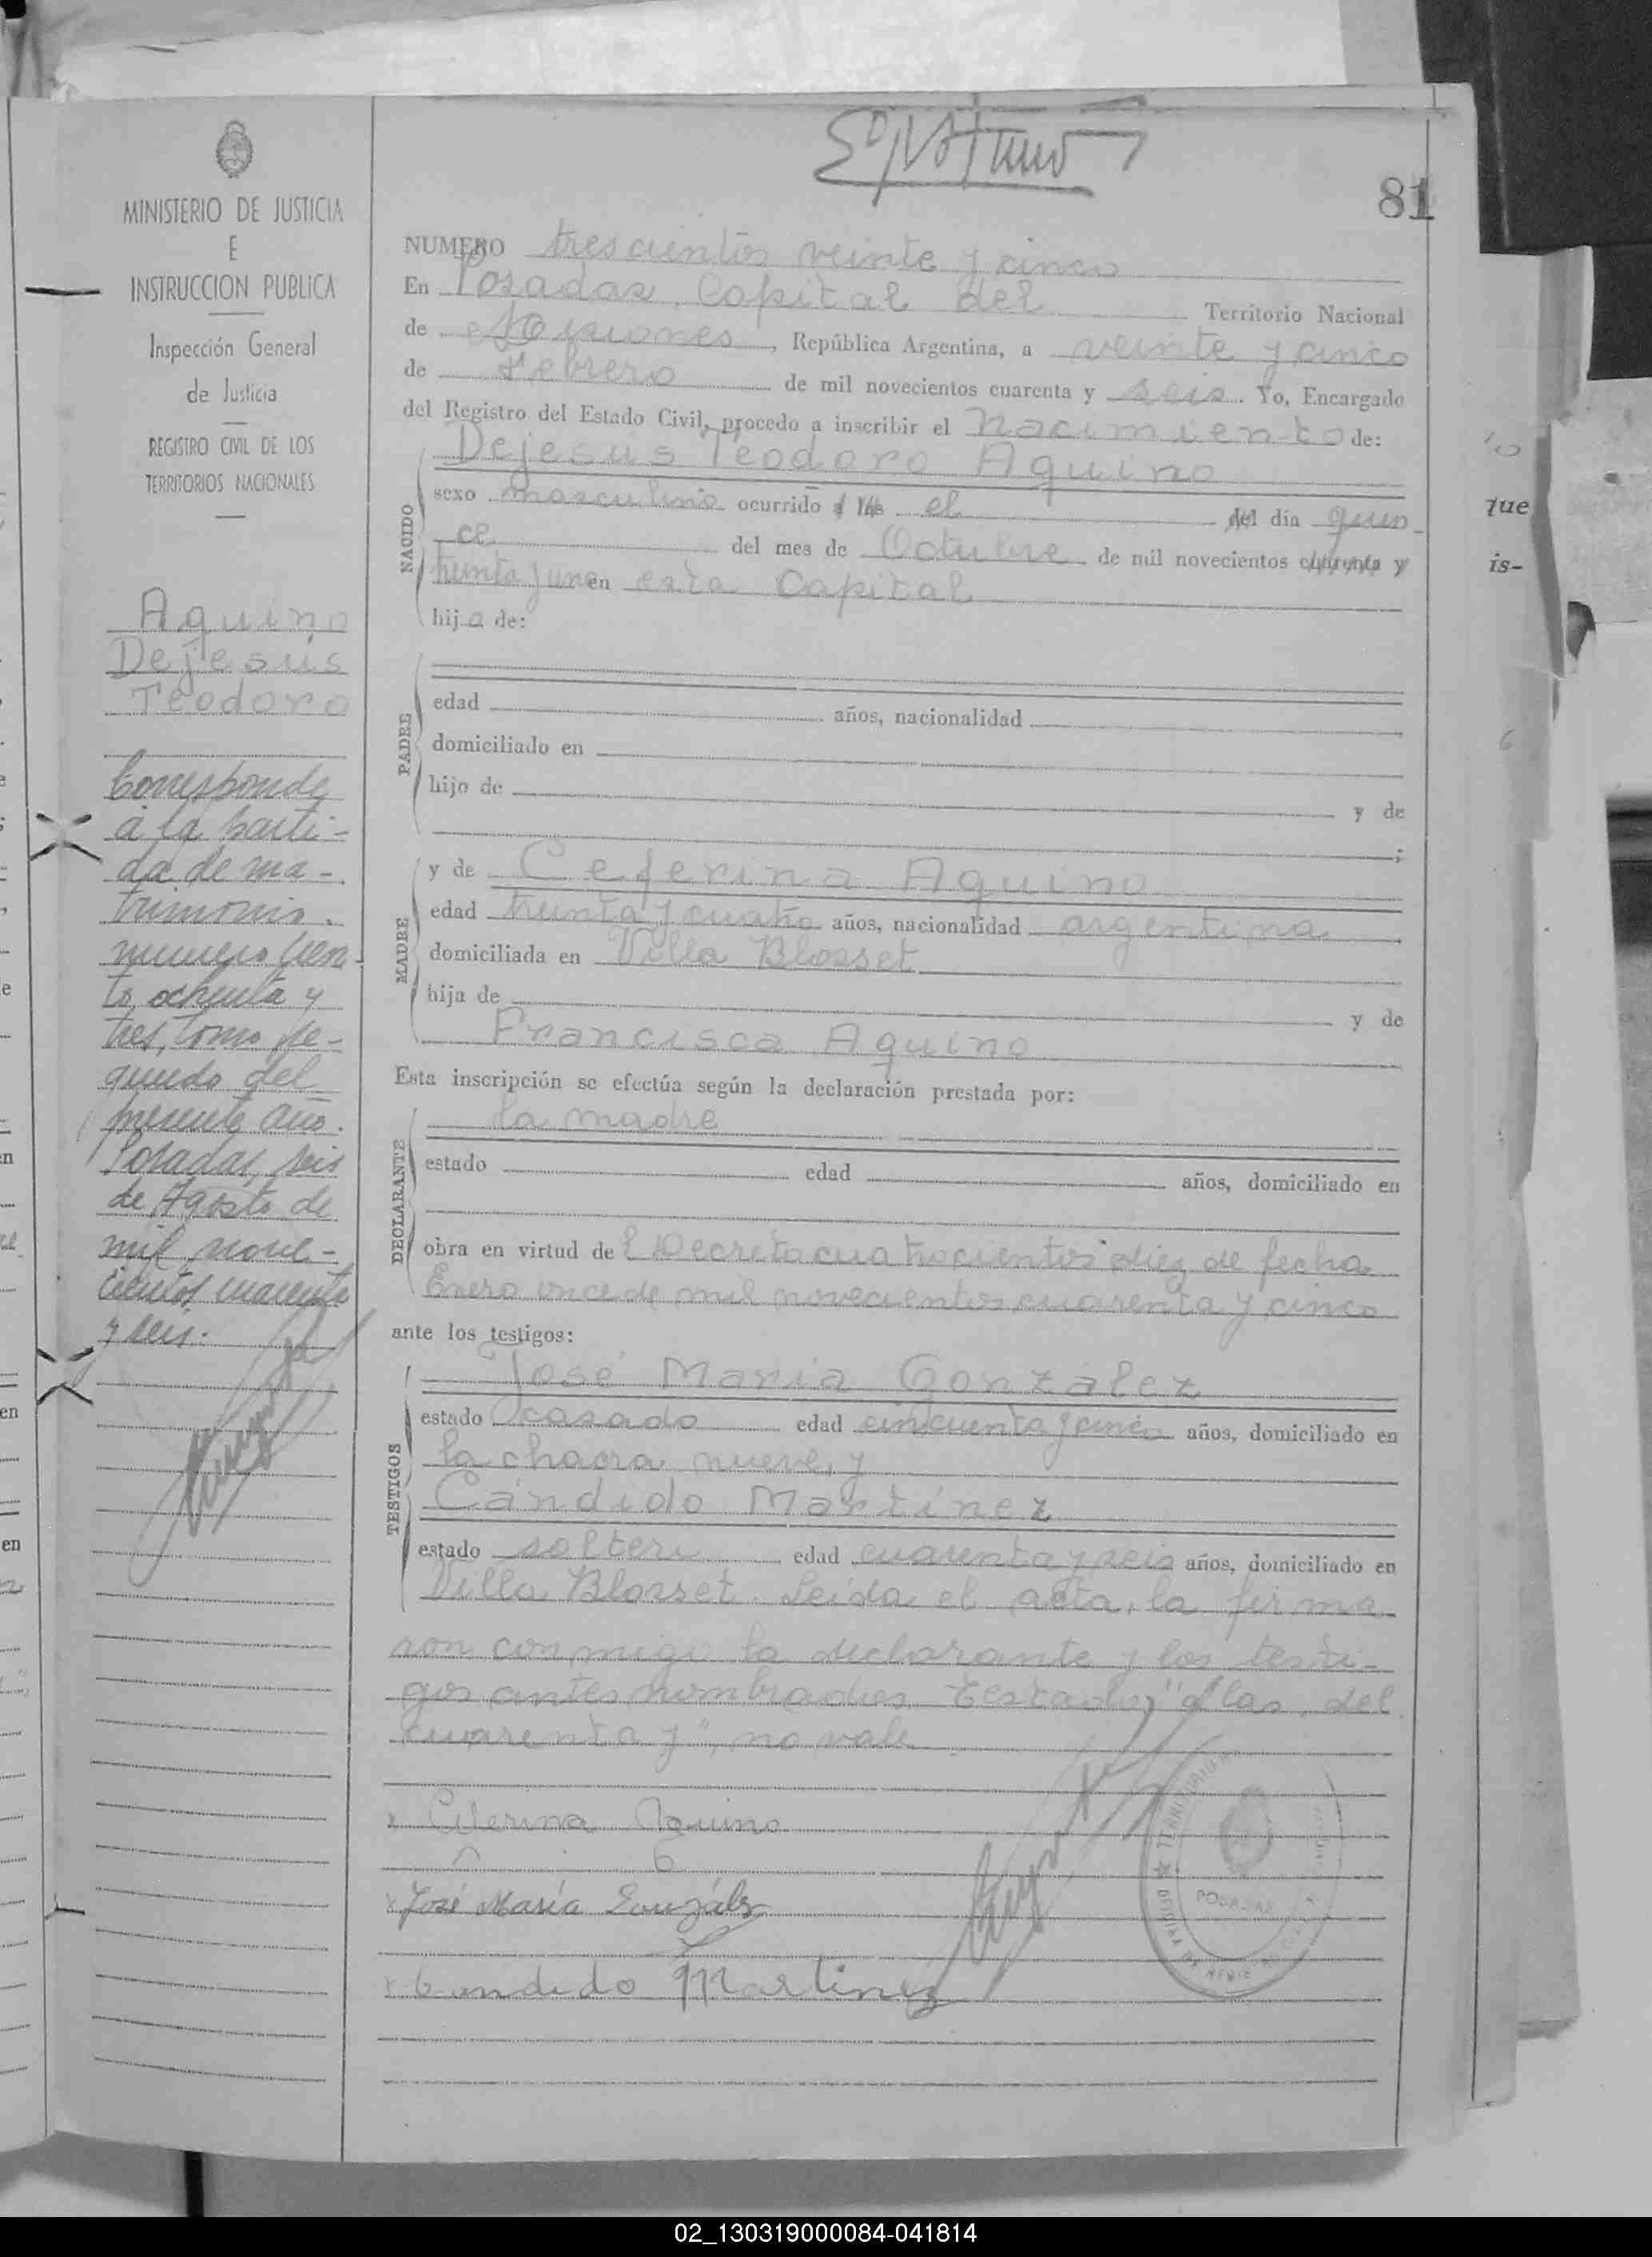 81
MINISTERIO DE JUSTICIA
E
INSTRUCCION PUBLICA
Inspección General
de Justicia
REGISTRO CIVIL DE LOS
TERRITORIOS NACIONALES
Aquino
Dejesús
Teodoro
Corresponde
a la parti-
da de ma-
trimonio
numero cien-
to ochenta y
tres, tomo se-
gundo del
presente año.
Posadas, seis
de Agosto de
mil nove-
cientos cuarenta
y seis.
NUMERO trescientos veinte y cinco
En Posadas, Capital del Territorio Nacional
de Misiones, República Argentina, a veinte y cinco
de Febrero de mil novecientos cuarenta y seis. Yo, Encargado
del Registro del Estado Civil, procedo a inscribir el Nacimiento de:
Dejesus Teodoro Aquino
NACIDO
sexo masculino ocurrido a las el del día quin-
ce del mes de Octubre de mil novecientos cuarenta y
treinta y uno en esta Capital
hijo de:
PADRE
edad años, nacionalidad
domiciliado en
hijo de y de
;
MADRE
y de Ceferina Aquino
edad treinta y cuatro años, nacionalidad argentina
domiciliada en Villa Blosset
hija de y de
Francisca Aquino
Esta inscripción se efectúa según la declaración prestada por:
DECLARANTE
la madre
estado edad años, domiciliado en
obra en virtud del Decreto cuatrocientos diez de fecha
Enero once de mil novecientos cuarenta y cinco
ante los testigos:
TESTIGOS
José María González
estado casado edad cincuenta y cinco años, domiciliado en
la chacra nueve, y
Cándido Martínez
estado soltero edad cuarenta y seis años, domiciliado en
Villa Blosset. Leída el acta, la firma-
ron conmigo la declarante y los testi-
gos antes nombrados. Testado: "a las, del
cuarenta y", no vale.
Ceferina Aquino
José María González
Candido Martinez
POSADAS
que
is-
02_130319000084-041814